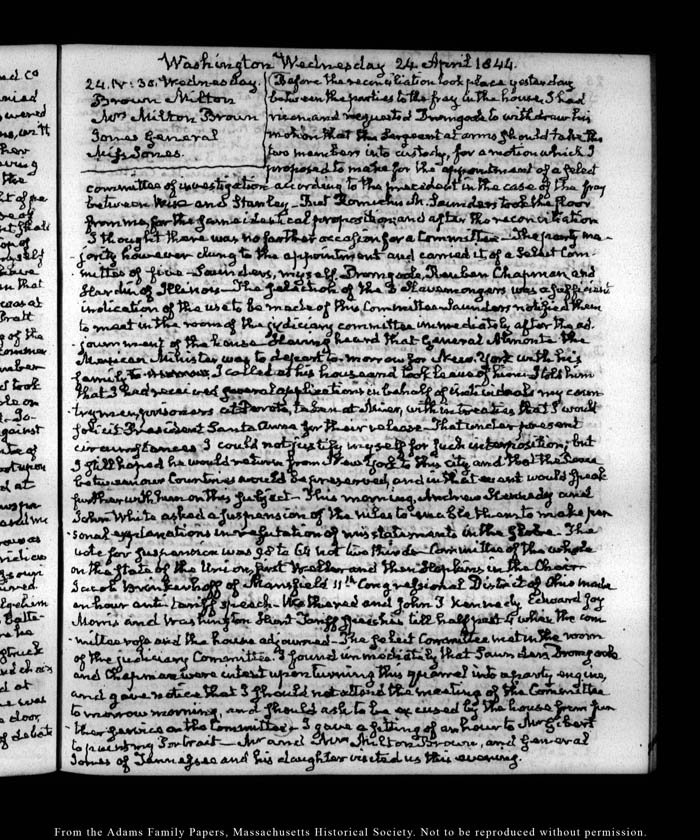 Washington Wednesday 24 April 1844.
24. IV: 30. Wednesday.
Brown Milton
Mrs Milton Brown
Jones General
Miss Jones.
Before the reconciliation took place yesterday
between the parties to the fray in the house, I had
risen and requested Dromgoole to withdraw his
motion that the Sergeant at arms should take the
two members into custody, for a motion which I
proposed to make for the appointment of a select
committee of investigation according to the precedent in the case of the fray
between Wise and Stanley. But Romulus M. Saunders took the floor
from me, for the same identical proposition; and after the reconciliation
I thought there was no further occasion for a Committee. The party ma-
jority however clung to the appointment and carried it of a Select Com-
mittee of five - Saunders, myself, Dromgoole, Reuben Chapman, and
Hardin of Illinois - The selection of the 3 Slavemongers was a sufficient
indication of the use to be made of this Committee. Saunders notified them
to meet in the room of the judiciary committee immediately after the ad-
journment of the house. Having heard that General Almonte the
Mexican Minister was to depart to-morrow for New-York with his
family, I called at his house and took leave of him. I told him
that I had received several applications in behalf of individuals my coun
trymen, prisoners at Perote, taken at Mier, with intreaties that I would
solicit President Santa Anna for their release. That under present
circumstances I could not justify myself for such interposition; but
I still hoped he would return from New York to this city and that the Peace
between our Countries would be preserved, and in that event would speak
further with him on this subject - This morning, Andrew Kennedy and
John White asked a suspension of the rules to enable them to make per
sonal explanations in refutation of misstatements in the Globe. The
vote for suspension was 98 to 64 not two thirds - Committee of the whole
on the state of the Union, first Weller and then Hopkins in the Chair
Jacob Brinkerhoff of Mansfield 11th Congressional District of Ohio made
an hour anti-tariff speech - Wethered and John P Kennedy Edward Joy
Morris and Washington Hunt Tariff speeches till half past 4 when the com
mittee rose and the house adjourned - The Select Committee met in the room
of the judiciary Committee. I found immediately that Saunders Dromgoole
and Chapman were intent upon turning this quarrel into a party engine,
and gave notice that I should not attend the meeting of the Committee
to morrow morning, and should ask to be excused by the house from fur
ther service on the Committee - I gave a sitting of an hour to Mr Gibert
to paint my Portrait - Mr and Mrs Milton Brown, and General
Jones of Tennessee and his daughter visited us this evening.
From the Adams Family Papers, Massachusetts Historical Society. Not to be reproduced without permission.